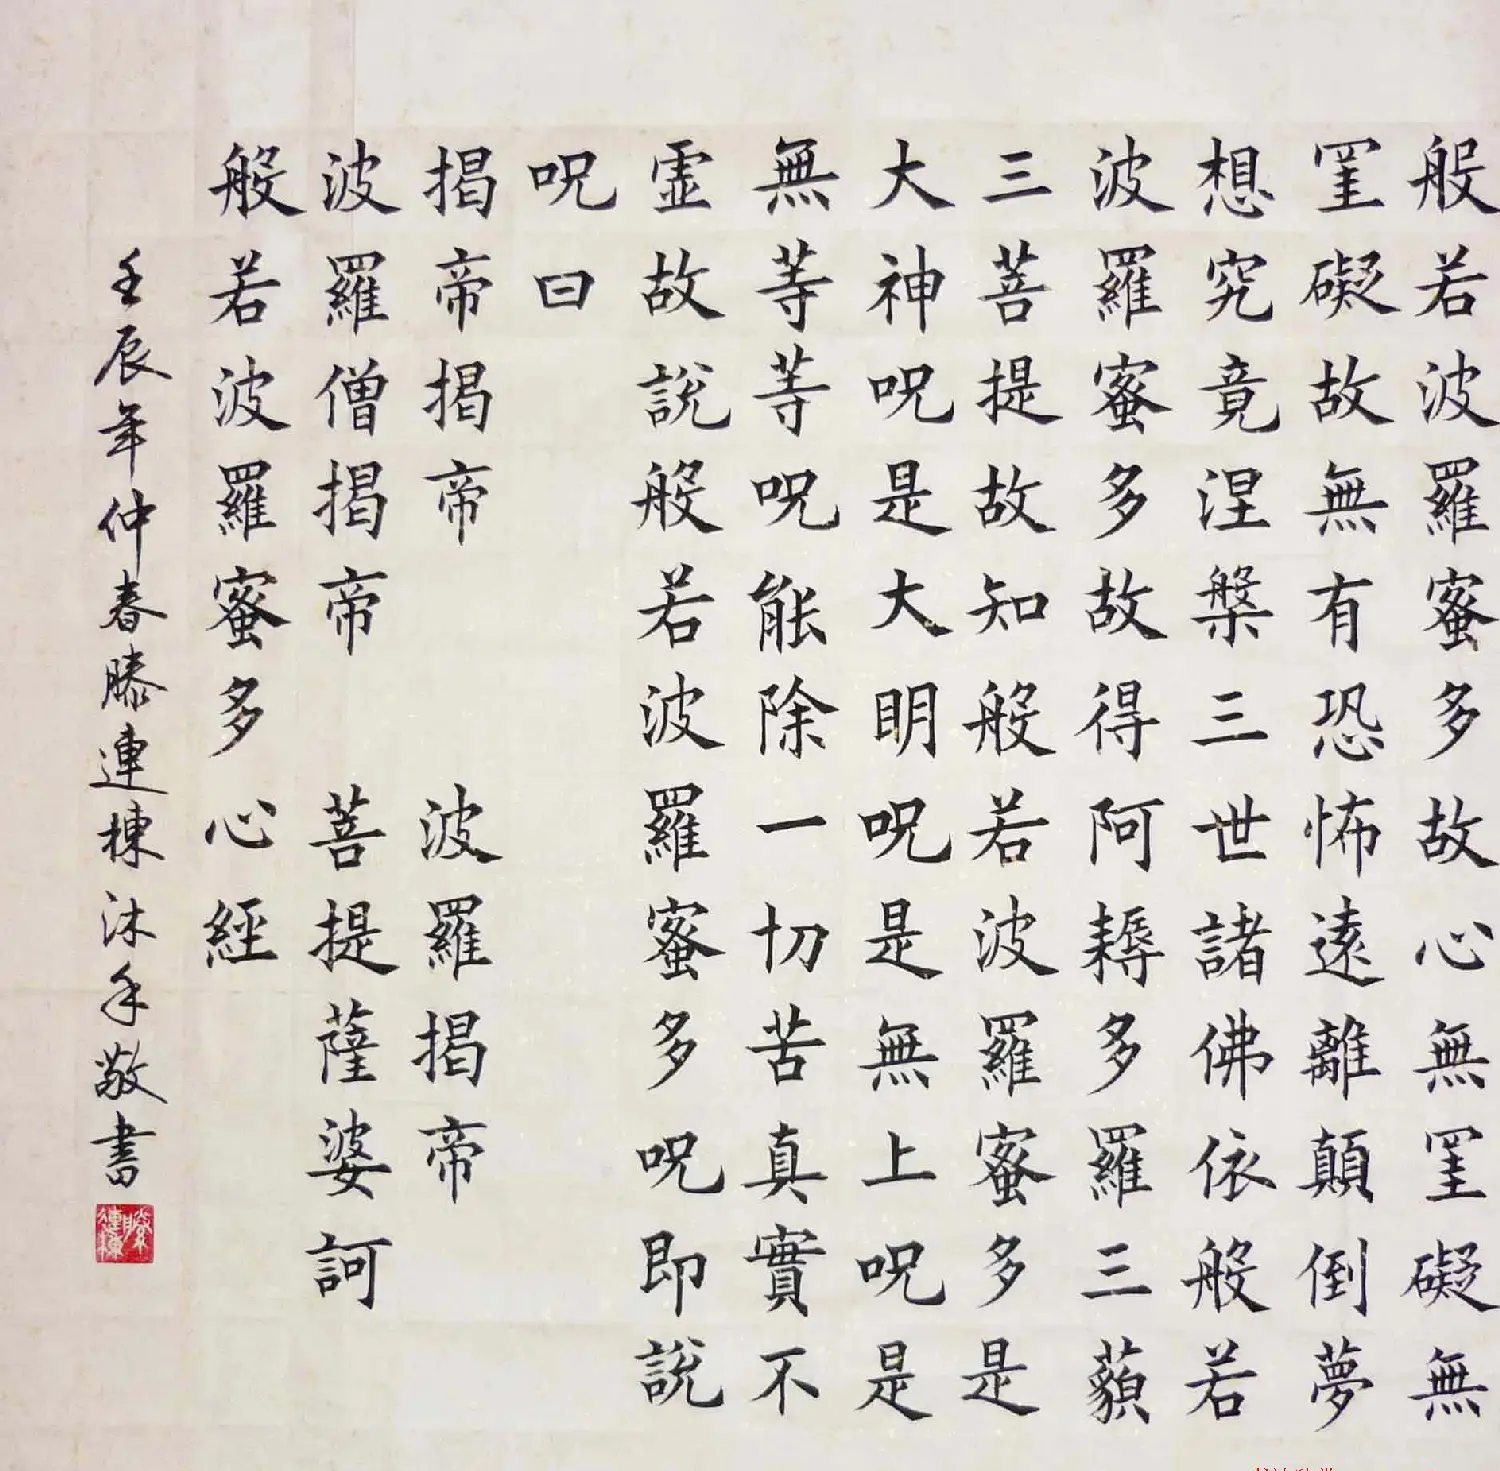 般若波羅蜜多故心無罣礙無
罣礙故無有恐怖遠離顛倒夢
想究竟涅槃三世諸佛依般若
波羅蜜多故得阿耨多羅三藐
三菩提故知般若波羅蜜多是
大神呪是大明呪是無上呪是
無等等呪能除一切苦真實不
虛故說般若波羅蜜多呪即說
呪曰
揭帝揭帝 波羅揭帝
波羅僧揭帝 菩提薩婆訶
般若波羅蜜多心經
壬辰年仲春滕連棟沐手敬書
滕連棟